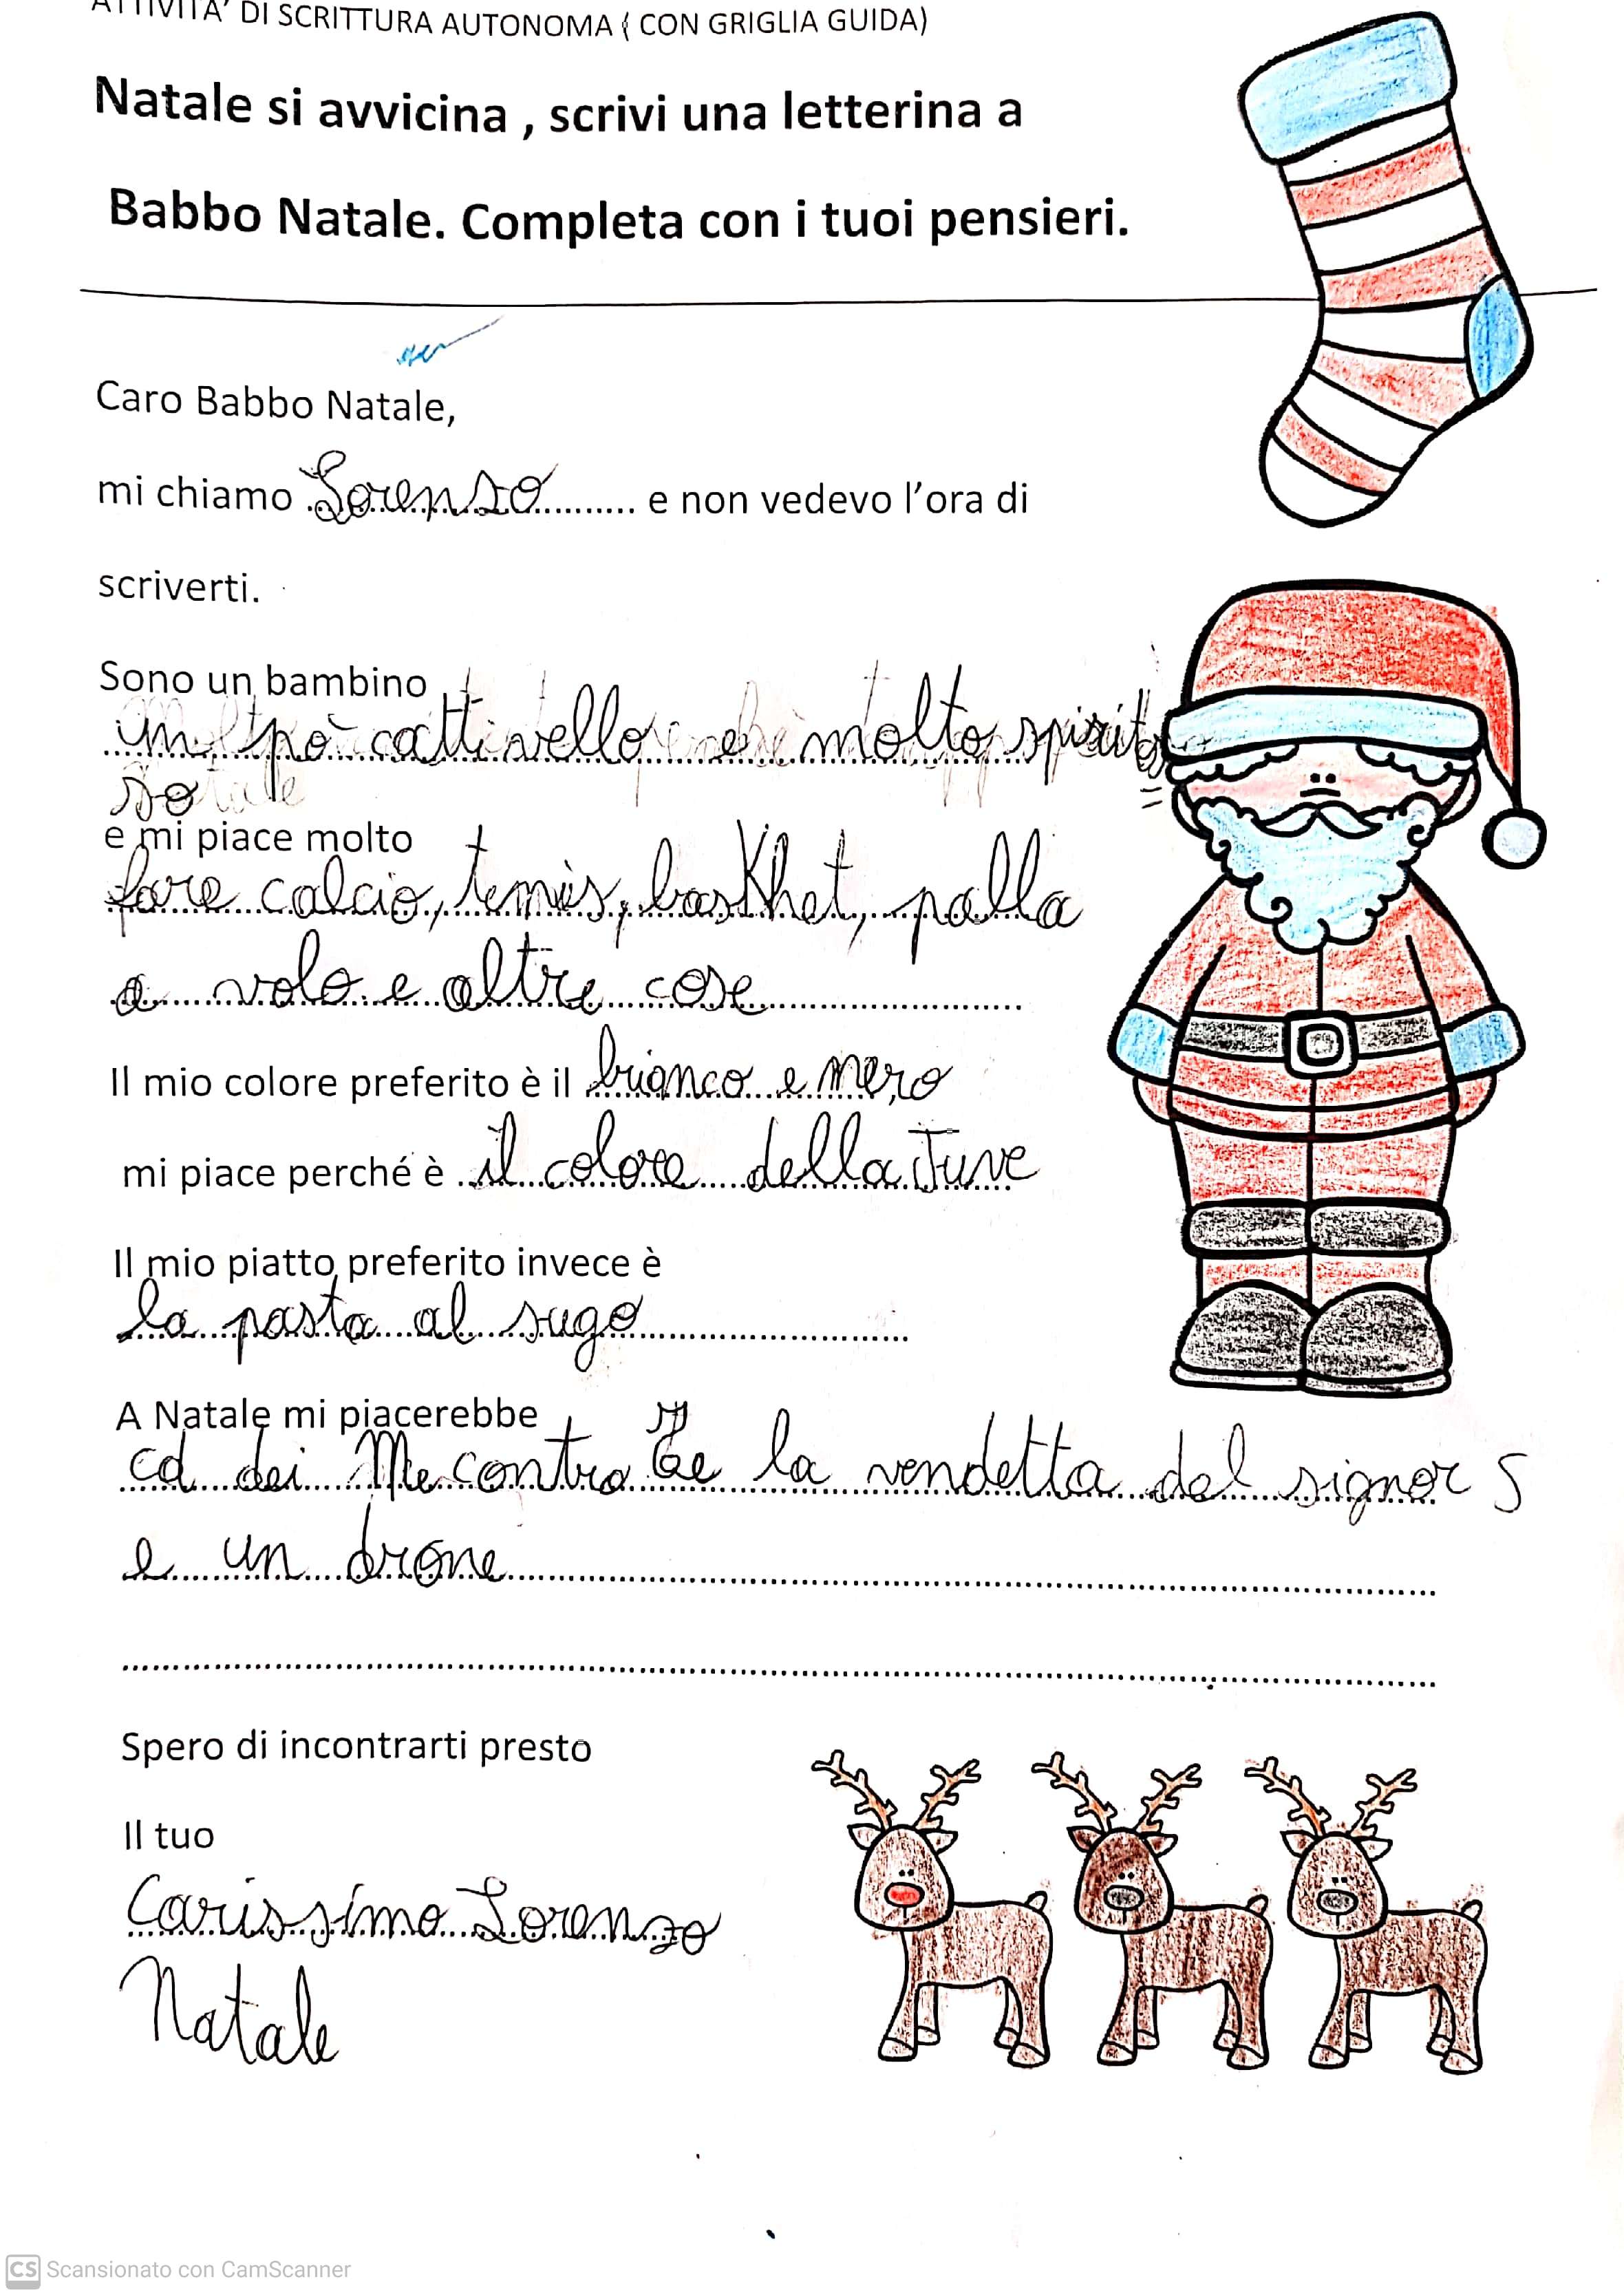 ATTIVITA' DI SCRITTURA AUTONOMA ( CON GRIGLIA GUIDA)
Natale si avvicina , scrivi una letterina a
Babbo Natale. Completa con i tuoi pensieri.
Caro Babbo Natale,
mi chiamo Lorenzo e non vedevo l'ora di
scriverti.
Sono un bambino
un pò cattivello e molto spirito
so
e mi piace molto
fare calcio, tennis, baskhet, palla
a volo e altre cose
Il mio colore preferito è il bianco e nero
mi piace perché è il colore della Juve
Il mio piatto preferito invece è
la pasta al sugo
A Natale mi piacerebbe
cd dei Me contro Te la vendetta del signor S
e un drone
Spero di incontrarti presto
Il tuo
Carissimo Lorenzo
Natale
CS Scansionato con CamScanner